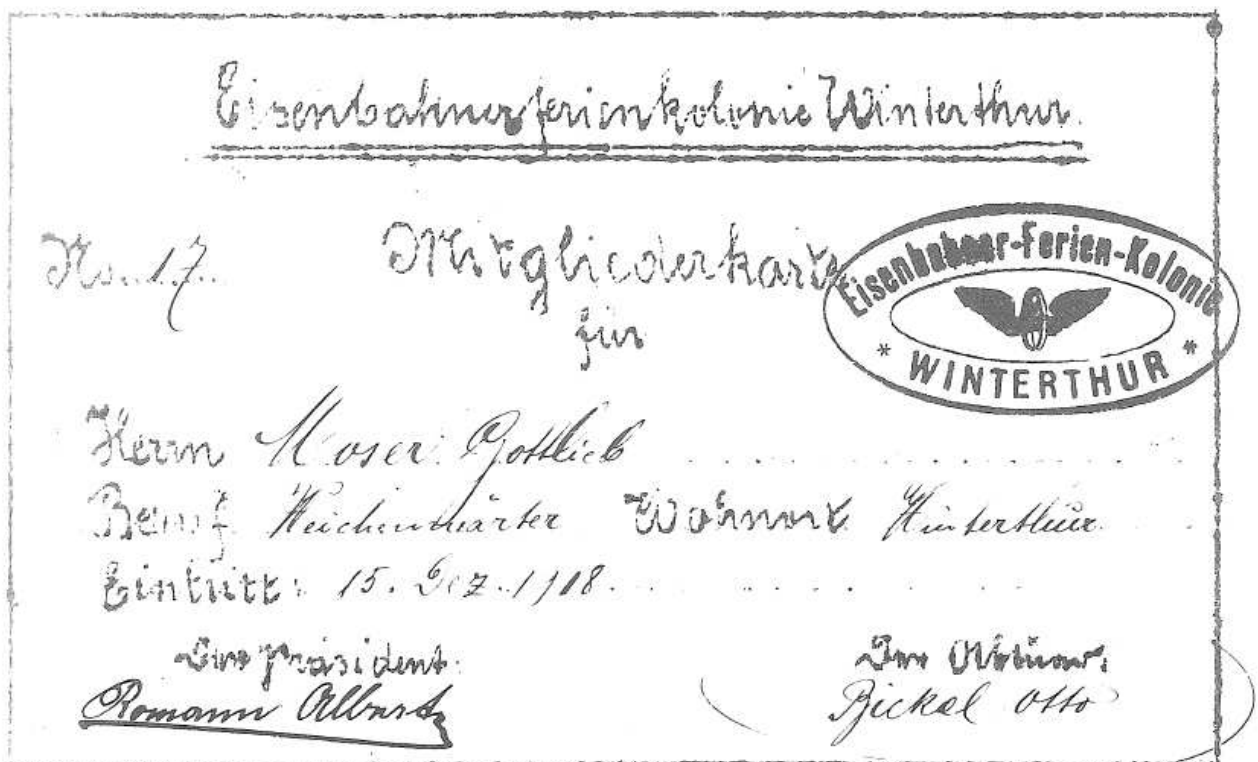 Eisenbahnerferienkolonie Winterthur.
No. 17.
Mitgliederkarte
für
Eisenbahner-Ferien-Kolonie
* WINTERTHUR *
Herrn Moser Gottlieb
Beruf Weichenwärter Wohnort Winterthur
Eintritt: 15. Dez. 1918.
Der Präsident:
Der Aktuar:
Romann Albert
Bickel Otto